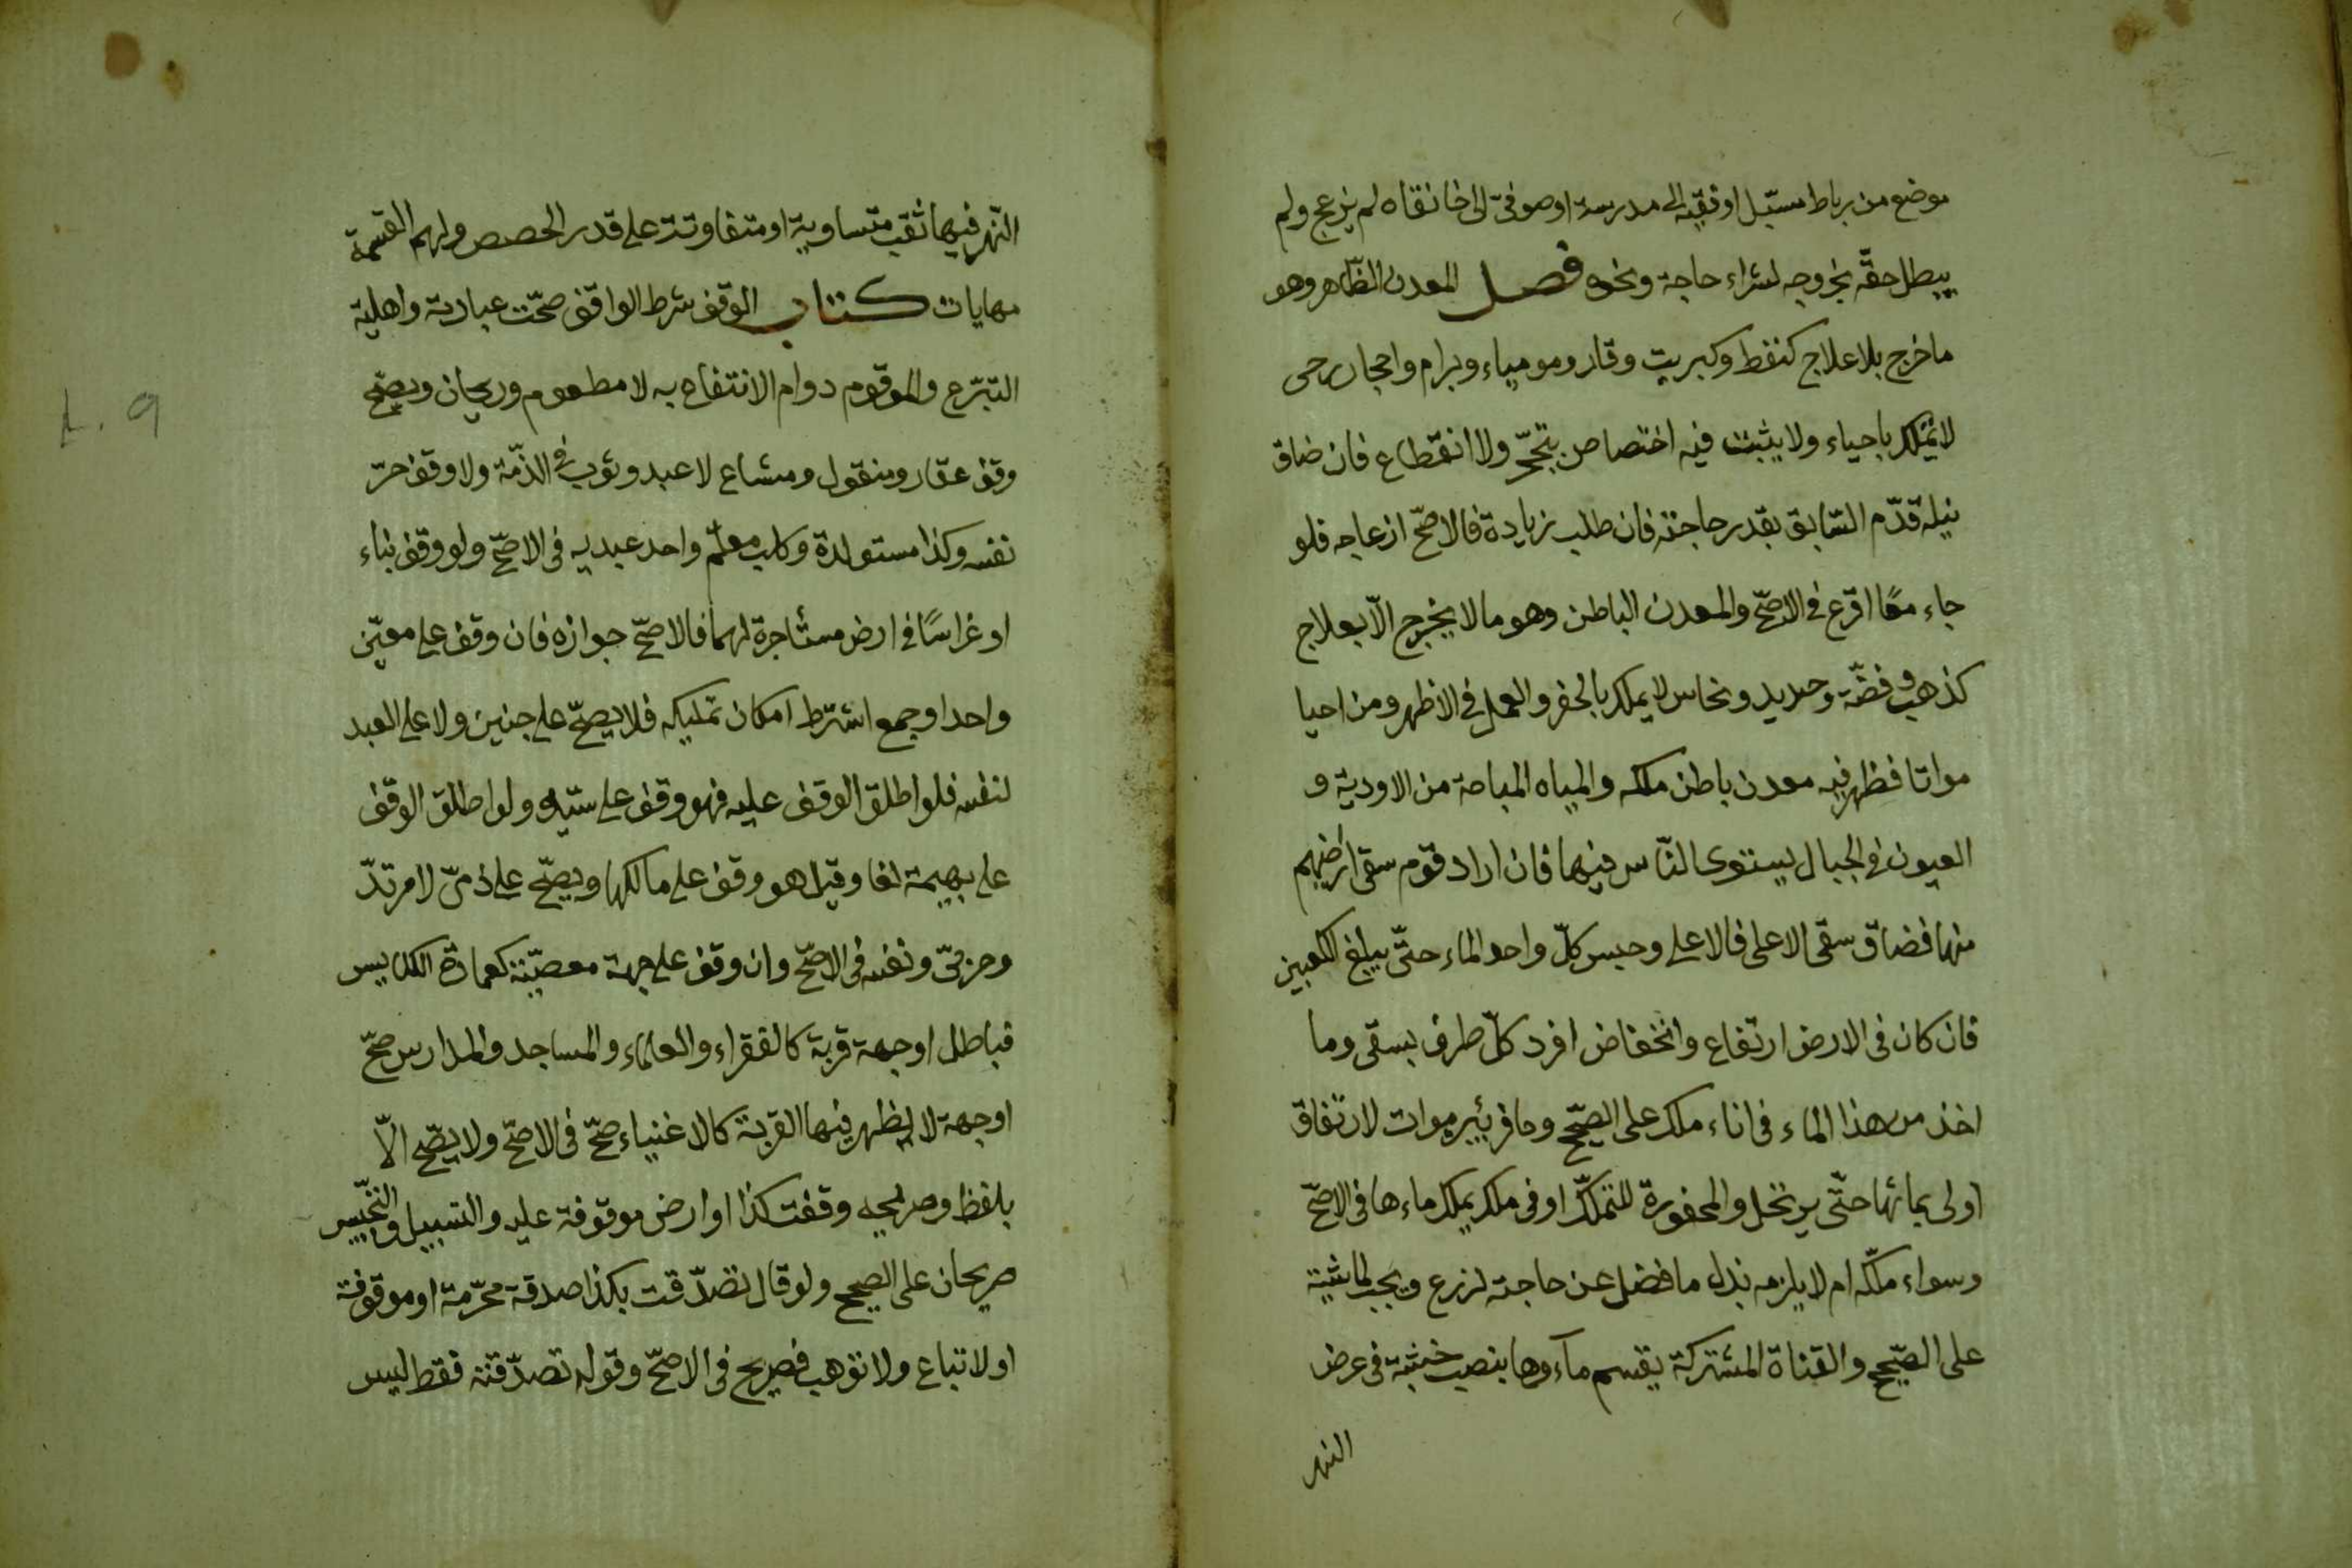 موضع من رباط مسبّل او فقيه الى مدرسة او صوفيّ الى خانقاه لم يزعج ولم
يبطل حقّه بخروجه لشراء حاجة ونحوه فصل المعدن الظّاهر وهو
ما خرج بلا علاج كنفط وكبريت وقار ومومياء وبرام واحجار رحى
لا يملك باحياء ولا يثبت فيه اختصاص بتحجّر ولا انقطاع فان ضاق
نيله قدّم السّابق بقدر حاجته فان طلب زيادة فالاصحّ ازعاجه فلو
جاء معًا اقرع فى الاصحّ والمعدن الباطن وهو ما لا يخرج الّا بعلاج
كذهب وفضّة وحديد ونحاس لا يملك بالحفر والعمل فى الاظهر ومن احيا
مواتا فظهر فيه معدن باطن ملكه والمياه المباحة من الاودية و
العيون فى الجبال يستوى النّاس فيها فان اراد قوم سقى ارضيهم
منها فضاق سقى الاعلى فالاعلى وحبس كلّ واحد الماء حتّى يبلغ الكعبين
فان كان فى الارض ارتفاع وانخفاض افرد كلّ طرف بسقى وما
اخذ من هذا الماء فى اناء ملك على الصّحيح وحافر بئير بموات لارتفاق
اولى بمائها حتّى يرتحل والمحفورة للتملّك او فى ملك يملك ماءها فى الاصحّ
وسواء ملكه ام لا يلزمه بذل ما فضل عن حاجته لزرع ويجب لماشية
على الصّحيح والقناة المشتركة يقسم مآءوها بنصب خشبة فى عرض
النهر
النّهر فيها ثقب متساوية او متفاوتة على قدر الحصص ولهم القسمة
مهايات كتاب الوقف شرط الواقف صحّت عبارته واهلية
التبرّع والموقوم دوام الانتفاع به لا مطعوم وريحان ويصحّ
وقف عقار ومنقول ومشاع لا عبد وثوب فى الذّمّة ولا وقف حرّ
نفسه وكذا مستولدة وكلب معلّم واحد عبديه فى الاصحّ ولو وقف بناء
او غراسًا فى ارض مستأجرة لهما فالاصحّ جوازه فان وقف على معيّن
واحد او جمع اشترط امكان تمليكه فلا يصحّ على جنين ولا على العبد
لنفسه فلو اطلق الوقف عليه فهو وقف على سيّده ولو اطلق الوقف
على بهيمة لغا وقيل هو وقف على مالكها ويصحّ على ذمىّ لا مرتدّ
وحربىّ ونفسه فى الاصحّ وان وقف على جهة معصيّة كعمارة الكنايس
فباطل او جهة قربة كالفقراء والعلماء والمساجد والمدارس صحّ
او جهة لا يظهر فيها القربة كالاغنياء صحّ فى الاصحّ ولا يصّح الّا
بلفظ وصريحه وقفت كذا او ارض موقوفة عليه والتسبيل والتّحبيس
صريحان على الصحيح ولو قال تصدّقت بكذا صدقة محرّمة او موقوفة
او لا تباع ولا توهب فصريح فى الاصحّ وقوله تصدّقت فقط ليس